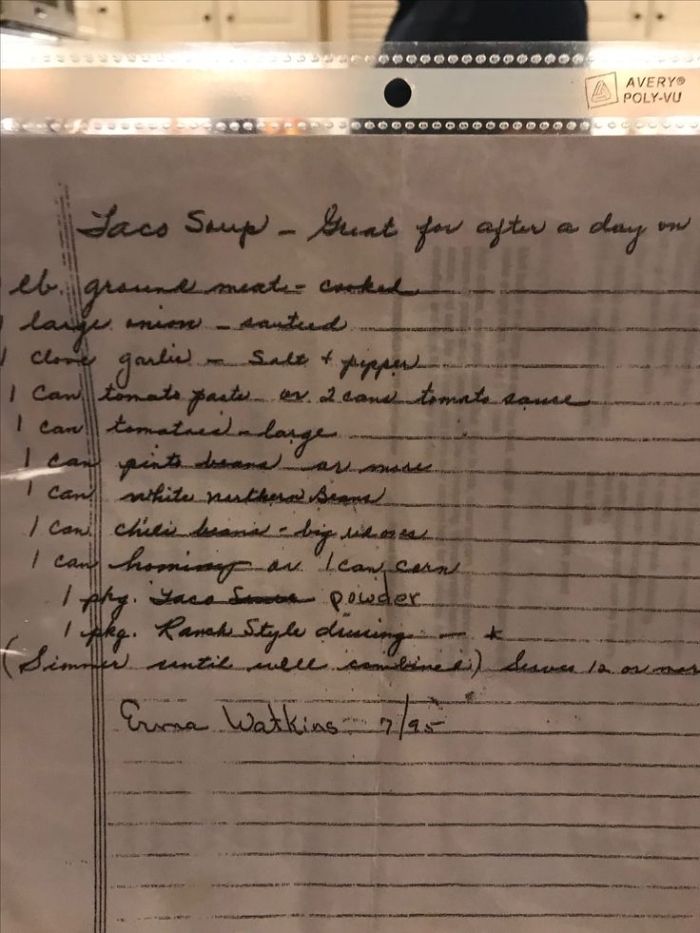 AVERY®
POLY-VU
Taco Soup - Great for after a day on
lb. ground meat - cooked
1 large onion - sauteed
1 clove garlic - Salt + pepper
1 Can tomato paste or 2 cans tomato sauce
1 can tomatoes - large
1 can pinto beans or more
1 can white northern Beans
1 can chili beans - big red ones
1 can hominy or 1 can corn
1 pkg. Taco powder
1 pkg. Ranch Style dressing - *
(Simmer until well combined) Serves 12 or mor
Erma Watkins 7/95